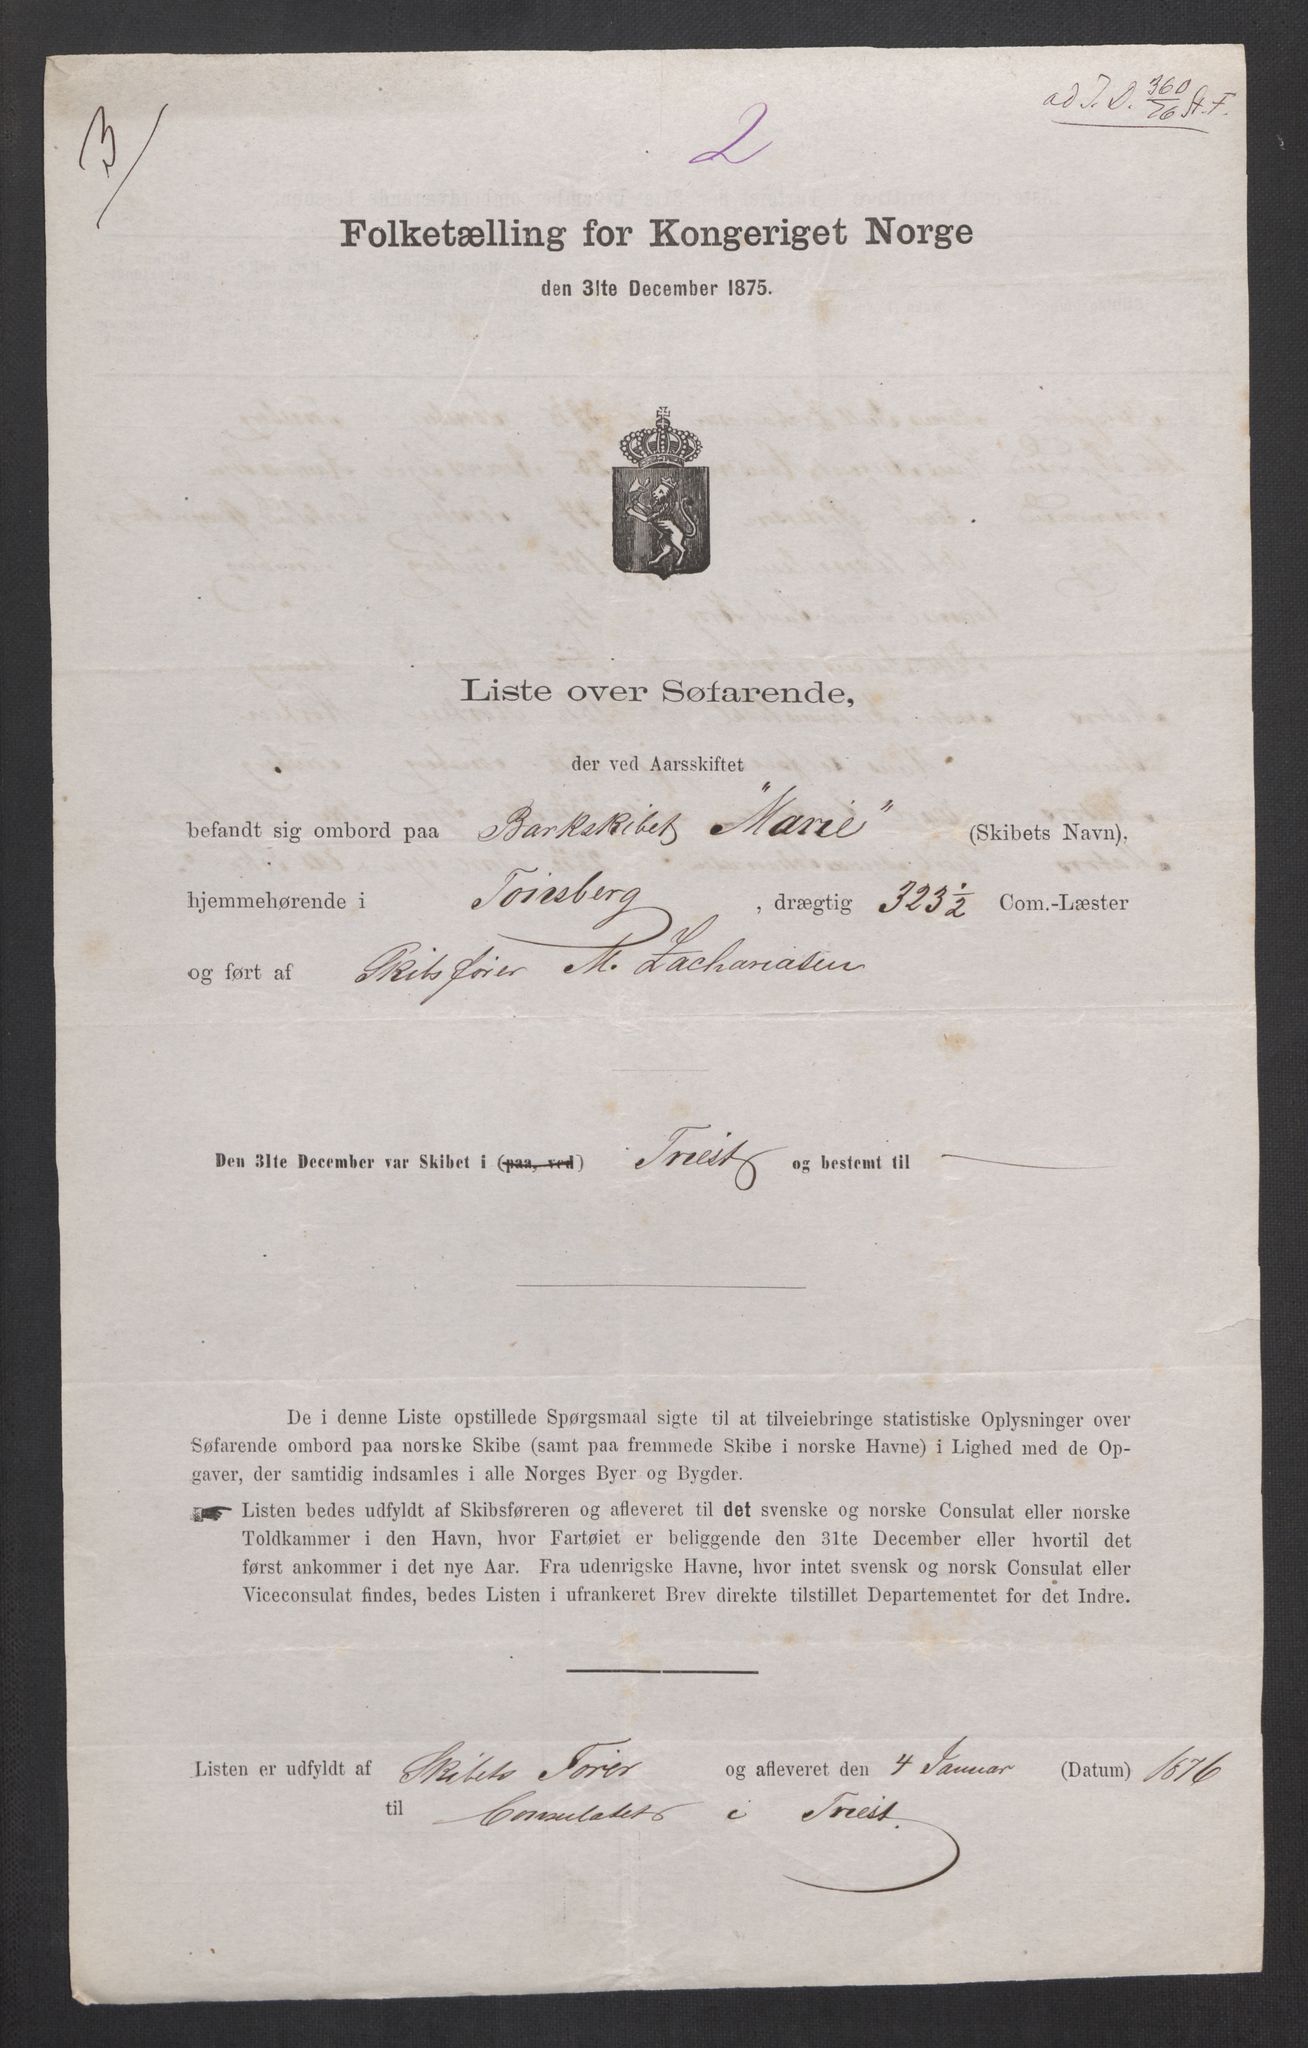 3/
2
ad J. D. 360/76 St. F.
Folketælling for Kongeriget Norge
den 31te December 1875.
Liste over Søfarende,
der ved Aarsskiftet
befandt sig ombord paa Barkskibet "Marie" (Skibets Navn),
hjemmehørende i Tønsberg, drægtig 323 1/2 Com.-Læster
og ført af Skibsfører M. Zachariasen
Den 31te December var Skibet i (paa, ved) Triest og bestemt til —
De i denne Liste opstillede Spørgsmaal sigte til at tilveiebringe statistiske Oplysninger over
Søfarende ombord paa norske Skibe (samt paa fremmede Skibe i norske Havne) i Lighed med de Op-
gaver, der samtidig indsamles i alle Norges Byer og Bygder.
Listen bedes udfyldt af Skibsføreren og afleveret til det svenske og norske Consulat eller norske
Toldkammer i den Havn, hvor Fartøiet er beliggende den 31te December eller hvortil det
først ankommer i det nye Aar. Fra udenrigske Havne, hvor intet svensk og norsk Consulat eller
Viceconsulat findes, bedes Listen i ufrankeret Brev direkte tilstillet Departementet for det Indre.
Listen er udfyldt af Skibets Fører og afleveret den 4 Januar (Datum) 1876
til Consulatet i Triest.